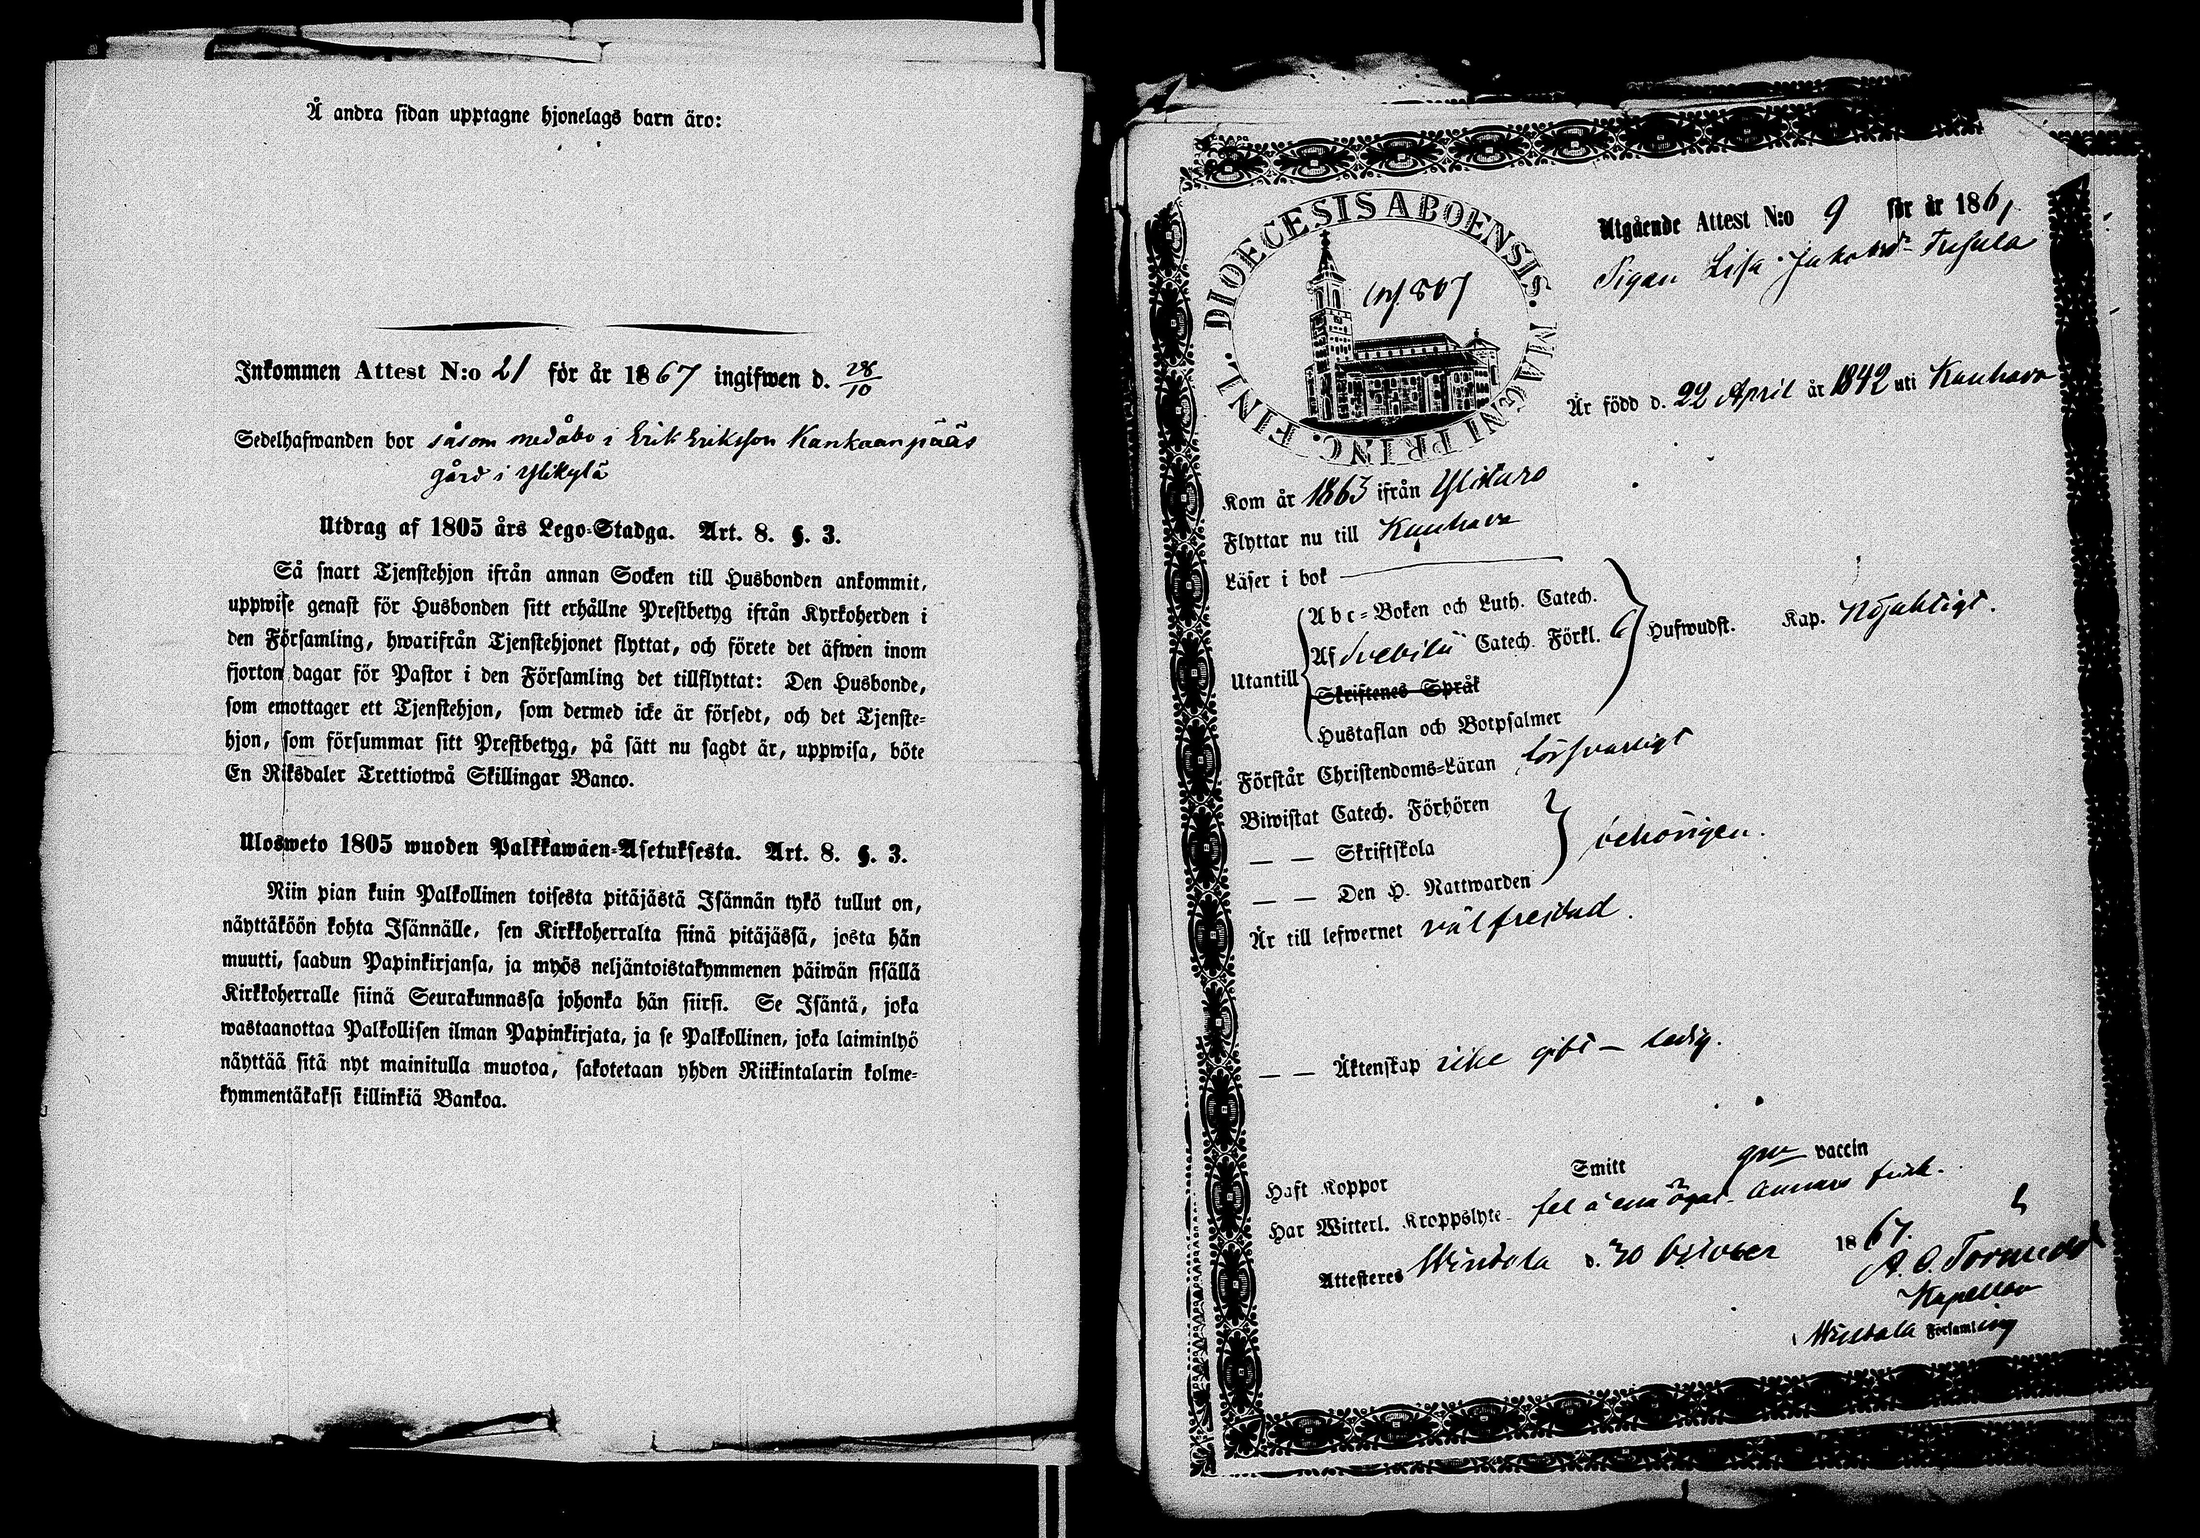 Å andra sidan upptagne hjonelags barn äro:
Inkommen Attest N:o 21 för år 1867 ingifwen d. 28/10
Sedelhafwanden bor såsom medåbo i Erik Eriksson Kankaanpääs
gård i Ylikylä
Utdrag af 1805 års Lego-Stadga. Art. 8. §. 3.
Så snart Tjenstehjon ifrån annan Socken till Husbonden ankommit,
uppwise genast för Husbonden sitt erhållne Prestbetyg ifrån Kyrkoherden i
den Församling, hwarifrån Tjenstehjonet flyttat, och förete det äfwen inom
fjorton dagar för Pastor i den Församling det tillflyttat: Den Husbonde,
som emottager ett Tjenstehjon, som dermed icke är försedt, och det Tjenste-
hjon, som försummar sitt Prestbetyg, på sätt nu sagdt är, uppwisa, böte
En Riksdaler Trettiotwå Skillingar Banco.
Ulosweto 1805 wuoden Palkkawäen-Asetuksesta. Art. 8. §. 3.
Niin pian kuin Palkollinen toisesta pitäjästä Isännän tykö tullut on,
näyttäköön kohta Isännälle, sen Kirkkoherralta siinä pitäjässä, josta hän
muutti, saadun Papinkirjansa, ja myös neljäntoistakymmenen päiwän sisällä
Kirkkoherralle siinä Seurakunnassa johonka hän siirsi. Se Isäntä, joka
wastaanottaa Palkollisen ilman Papinkirjata, ja se Palkollinen, joka laiminlyö
näyttää sitä nyt mainitulla muotoa, sakotetaan yhden Riikintalarin kolme-
kymmentäkaksi killinkiä Bankoa.
DIOECESIS ABOENSIS. MAGNI PRINC. FINL.
Utgående Attest N:o 9 för år 186
Pigan Lisa Jakobsdr
Är född d. 22 April år 1842 uti Kauhava
Kom år 1863 ifrån Ylistaro
Flyttar nu till Kauhava
Läser i bok
Utantill
Abc-Boken och Luth. Catech.
Af Svebilii Catech. Förkl.
Skriftenes Språk
Hustaflan och Botpsalmer
Hufwudst. Kap. Nöjaktigt.
Förstår Christendoms-Läran försvarligt
Biwistat Catech. Förhören
— — Skriftskola
— — Den H. Nattwarden
behörigen.
Är till lefwernet välfrejdad.
— — Äktenskap icke gift – ledig.
Haft Koppor Smitt vaccin
Har Witterl. Kroppslyte fel å ena ögat. annars frisk.
Attesteres d. 20 October 1867.
Kapellan
Församling